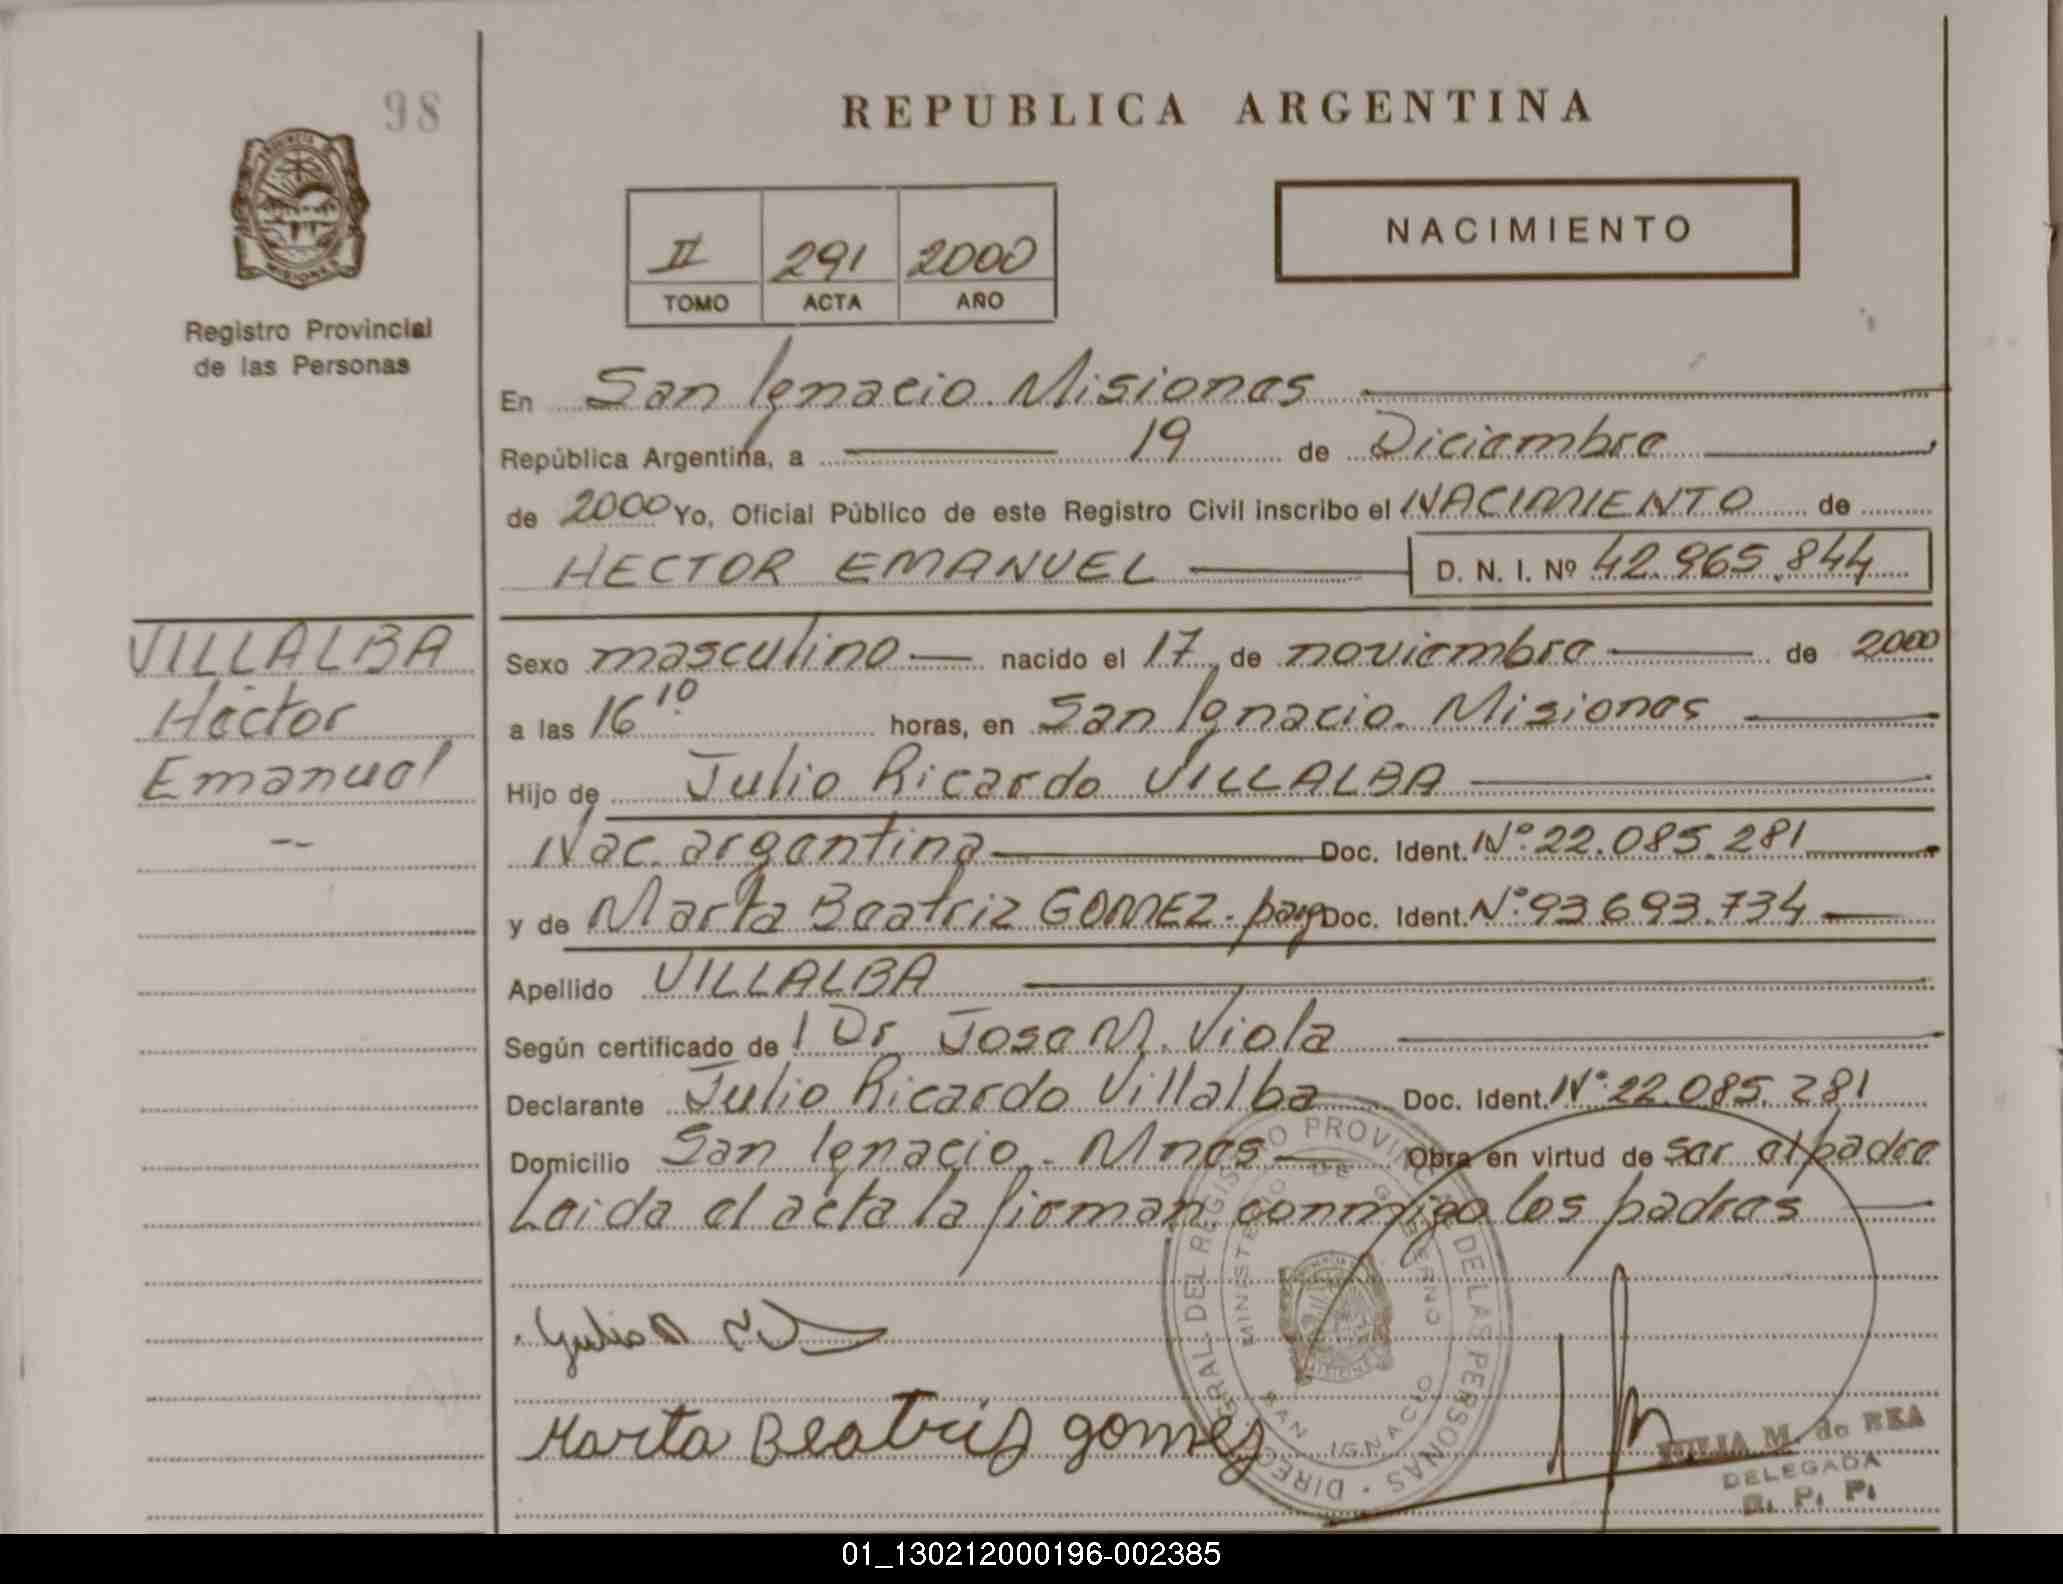 98
REPUBLICA ARGENTINA
II 291 2000
TOMO ACTA AÑO
NACIMIENTO
Registro Provincial
de las Personas
En San Ignacio. Misiones
República Argentina, a 19 de Diciembre
de 2000 Yo, Oficial Público de este Registro Civil inscribo el NACIMIENTO de
HECTOR EMANUEL D. N. I. Nº 42.965.844
VILLALBA
Hector
Emanuel
Sexo masculino nacido el 17 de noviembre de 2000
a las 16 10 horas, en San Ignacio. Misiones
Hijo de Julio Ricardo VILLALBA
Nac. argentina Doc. Ident. Nº 22.085.281
y de Marta Beatriz GOMEZ. parg Doc. Ident. Nº 93.693.734
Apellido VILLALBA
Según certificado de l Dr Jose M. Viola
Declarante Julio Ricardo Villalba Doc. Ident. Nº 22.085.281
Domicilio San Ignacio - Mnes Obra en virtud de ser el padre
Leida el acta la firman conmigo los padres
Julio R
Marta Beatriz gomez
DIRECC GRAL DEL REGISTRO PROVINCIAL DE LAS PERSONAS
MINISTERIO DE GOBIERNO
SAN IGNACIO
JULIA M. de REA
DELEGADA
R. P. P.
01_130212000196-002385